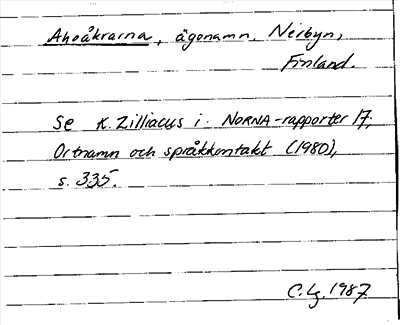 Ahoåkrarna, ägonamn, Nerbyn,
Finland.
Se K. Zilliacus i: NORNA-rapporter 17,
Ortnamn och språkkontakt (1980),
s. 335.
C. Lg. 1987